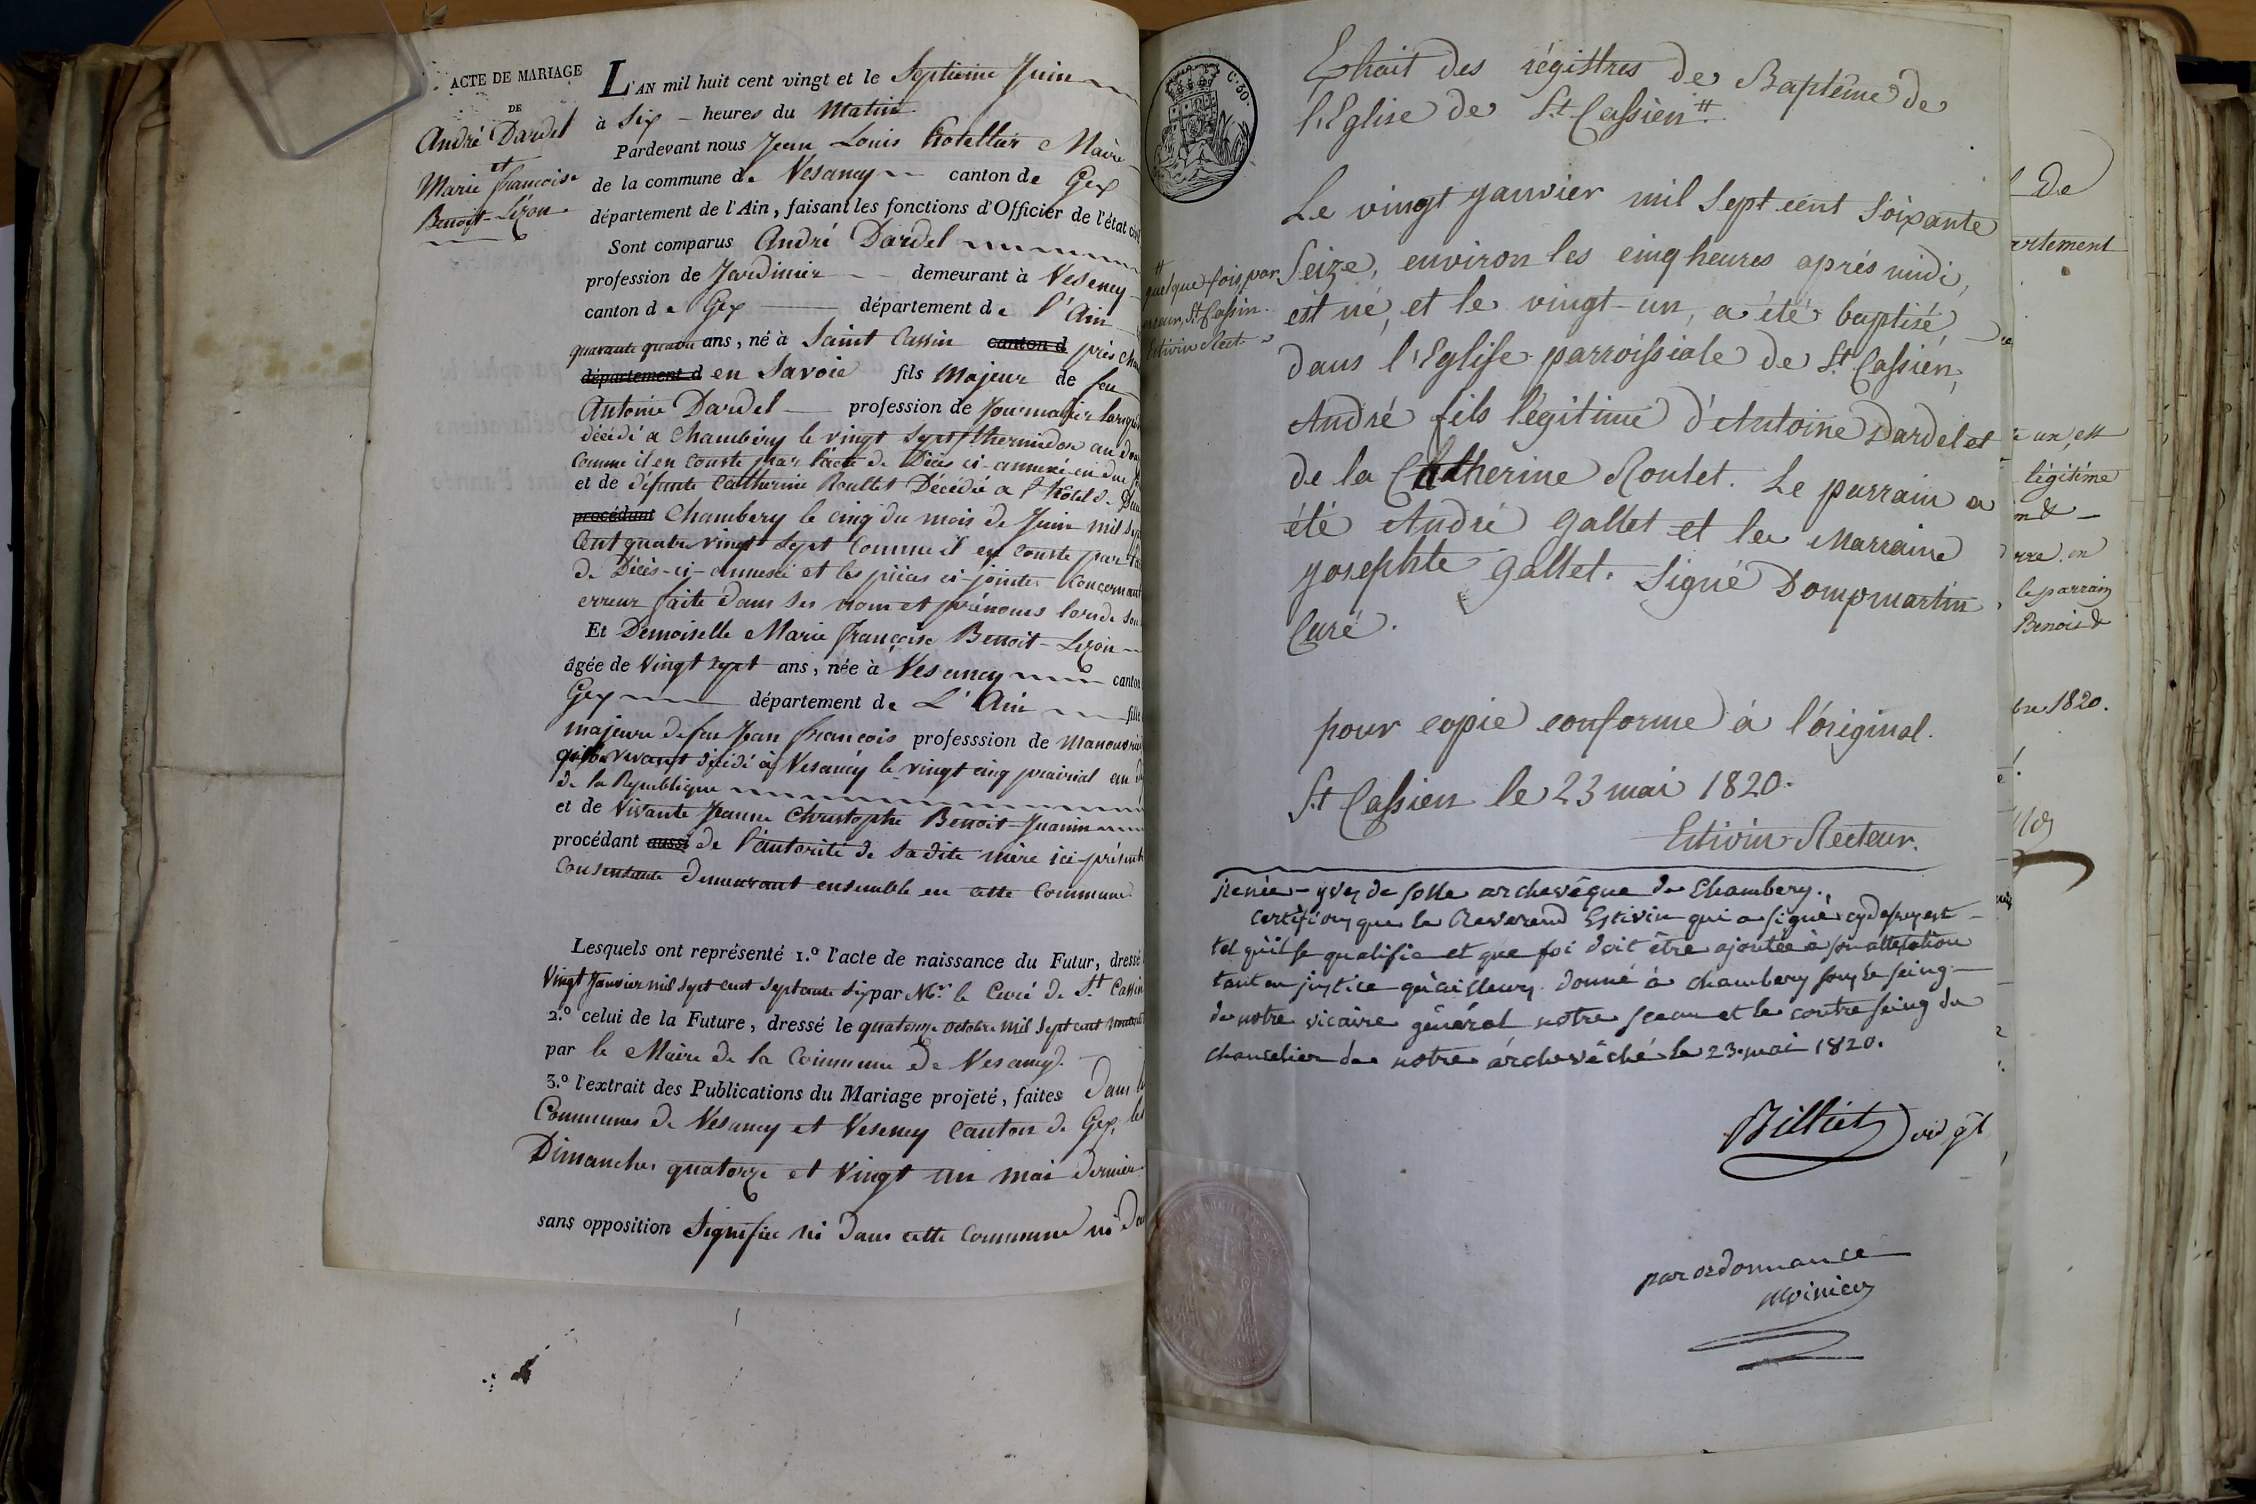 ACTE DE MARIAGE
DE
André Dardel
et
Marie françoise
Benoit-Lizon
L'AN mil huit cent vingt et le Septieme Juin
à Six heures du Matin
Pardevant nous Jean Louis Maire
de la commune de Vesancy canton de Gex
département de l'Ain, faisant les fonctions d'Officier de l'état civ
Sont comparus André Dardel
profession de Jardinier demeurant à Vesency
canton de Gex département de l'Ain
quarante quatre ans, né à Saint Cassin canton d près
département d en Savoie fils Majeur de feu
Antoine Dardel profession de Journalier
décédé a Chambéry le vingt Sept thermidor an
Comme il en Conste par l'acte de Décès ci-annexé en due
et de défunte Catherine Roullet Décédée a l'hôtel-
procédant Chambery le cinq du mois de Juin mil Sep
Cent quatre vingt Sept Comme il en Conste par
de Décès-ci-annexé et les pièces ci-jointes Concernant
erreur faite dans ses nom et prénoms lors de son
Et Demoiselle Marie françoise Benoit-Lizon
âgée de Vingt Sept ans, née à Vesancy canton
Gex département de L'Ain fille
majeure de feu Jean francois professsion de Manouvrier
vivant décédé à Vesancy le vingt cinq prairial an
de la République
et de Vivante Jeanne Christophe Benoit-Juanin
procédant aussi de l'autorité de sa dite mère ici présente
Consentante Demeurant ensemble en cette Commune
Lesquels ont représenté 1.º l'acte de naissance du Futur, dressé
Vingt Janvier mil Sept cent Septante Six par Mr. le Curé de St. Cassin
2.º celui de la Future, dressé le quatorze octobre mil Sept cent
par le Maire de la Commune de Vesancy.
3.º l'extrait des Publications du Mariage projeté, faites Dans
Communes de Vesancy et Vesency Canton de Gex, les
Dimanches quatorze et Vingt un mai dernier
sans opposition Signifiée ni dans cette Commune ni
C. 30.
Extrait des régistres de Baptême de
l'Eglise de St. Cassien #
Le vingt janvier mil Sept cent Soixante
Seize, environ les cinq heures après midi,
est né, et le vingt-un, a été baptisé
dans l'Eglise parroissiale de St. Cassien,
André fils légitime d'Antoine Dardel et
de la Catherine Roulet. Le parrain a
été André Gallet et la Marraine
Josephte Gallet. Signé Dompmartin
Curé.
#
quelque fois, par
erreur, St. Cassin.
Estivin Rect.
pour copie conforme à l'original.
St Cassien le 23 mai 1820.
Estivin Recteur.
Irenée-yves de solle archevêque de Chambery.
Certifions que le Reverend Estivin qui a signé cydessus est
tel qu'il se qualifie et que foi doit être ajoutée à son attestation
tant en justice qu'ailleurs. donné à chambery sous le seing
de notre vicaire général notre sceau et le contre seing du
chancelier de notre archevêché le 23. mai 1820.
Billiet vic gl
par ordonnance
de
artement
un, est
légitime
en
le parrain
Benoit
bre 1820.